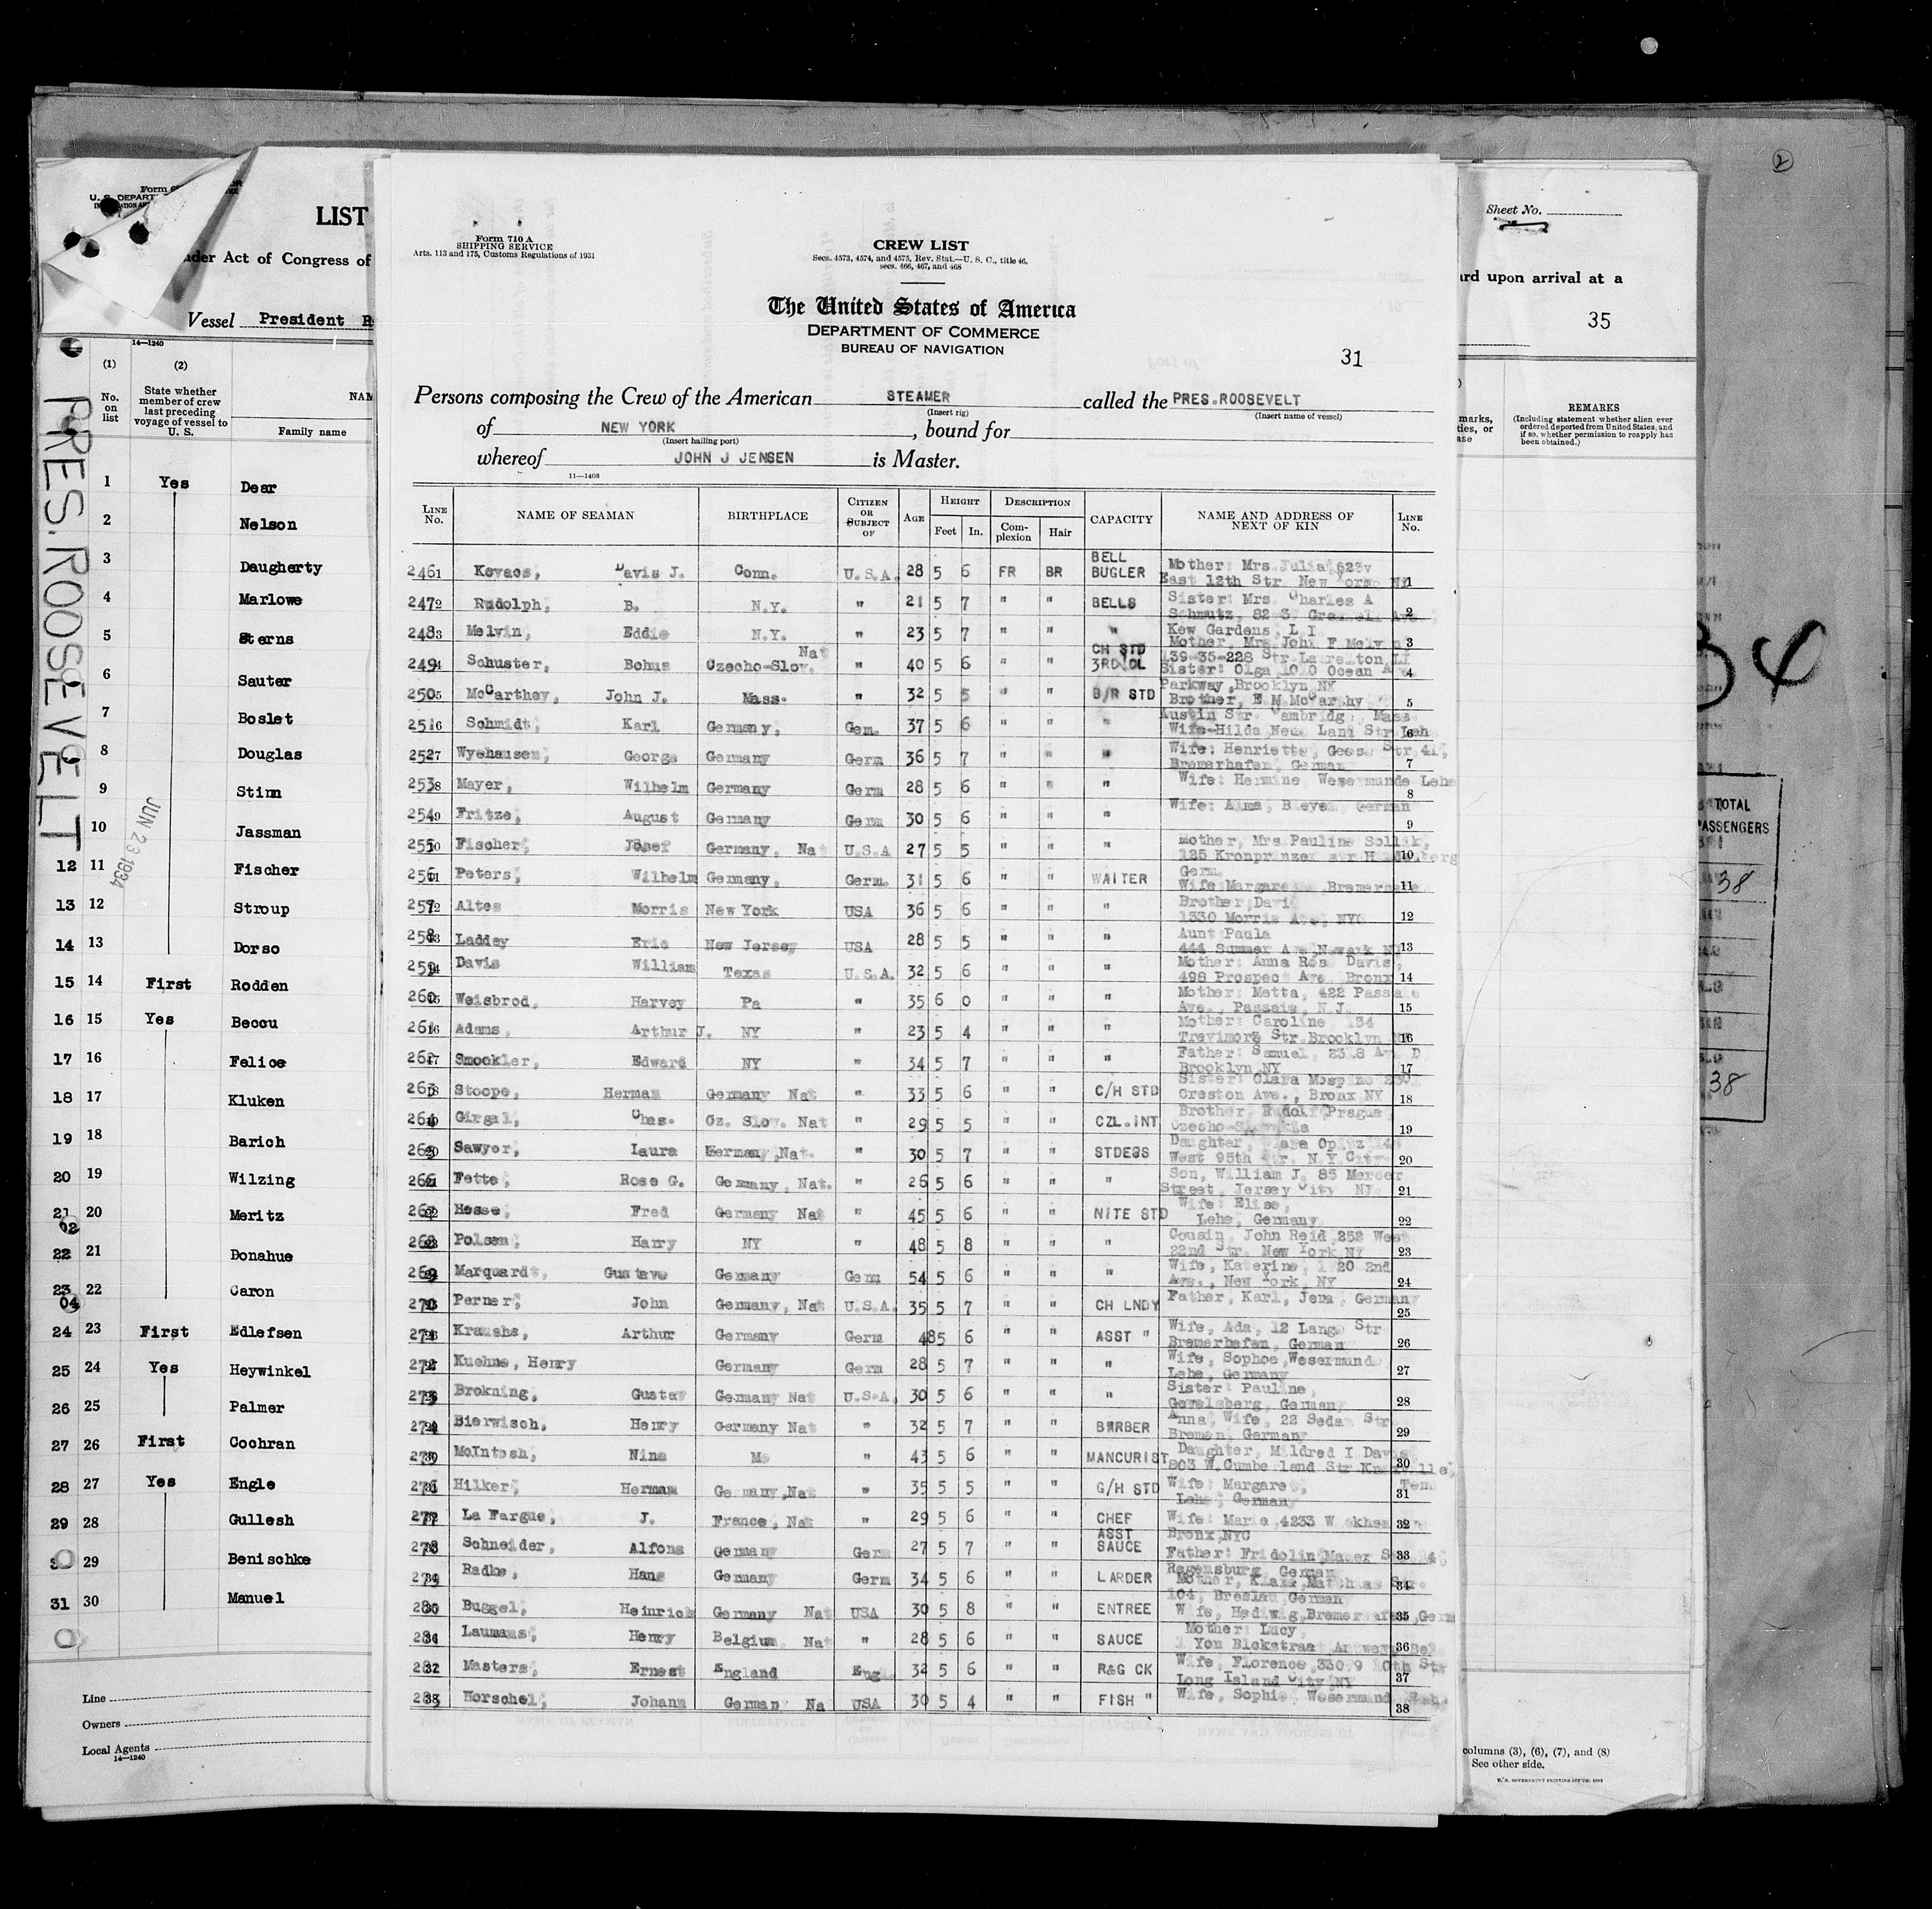 Form 710 A
SHIPPING SERVICE
Arts. 113 and 175, Customs Regulations of 1931
CREW LIST
Secs. 4573, 4574, and 4575, Rev. Stat.—U. S. C., title 46,
secs. 466, 467, and 468
The United States of America
DEPARTMENT OF COMMERCE
BUREAU OF NAVIGATION
31
Persons composing the Crew of the American STEAMER called the PRES.ROOSEVELT
(Insert rig) (Insert name of vessel)
of NEW YORK, bound for
(Insert hailing port)
whereof JOHN J JENSEN is Master.
11—1408
LINE No. NAME OF SEAMAN BIRTHPLACE CITIZEN OR SUBJECT OF AGE HEIGHT Feet In. DESCRIPTION Complexion Hair CAPACITY NAME AND ADDRESS OF NEXT OF KIN LINE No.
246 1 Kovacs, Davis J. Conn. U.S.A. 28 5 6 FR BR BELL BUGLER Mother: Mrs. Julia 623 East 12th Str New York NY 1
247 2 Rudolph, B. N.Y. " 21 5 7 " " BELLS Sister: Mrs. Charles A Schmutz, 2
248 3 Melvin, Eddie N.Y. " 23 5 7 " " " Kew Gardens, L I Mother, Mrs John F Melvin 3
249 4 Schuster, Bohus Czecho-Slov. Nat " 40 5 6 " " CH STD 139-35-228 Str Laurelton LI Sister: Olga 1010 Ocean 4
250 5 McCarthey, John J. Mass. " 32 5 5 " " B/R STD Parkway, Brooklyn NY Brother, E M McCarthy 5
251 6 Schmidt, Karl Germany, Gem. 37 5 6 " " " Austin Str. Cambridge Mass Wife-Hilda 6
252 7 Wyehausen, George Germany Germ 36 5 7 " " " Wife: Henriette, Str 41, Bremerhafen, German 7
253 8 Mayer, Wilhelm Germany Germ 28 5 6 " " " Wife: Hermine Wesermunde Lehe 8
254 9 Fritze, August Germany Germ 30 5 6 " " " Wife: Alma, German 9
255 10 Fischer, Josef Germany, Nat U.S.A 27 5 5 " " " mother, Mrs Pauline 125 10
256 11 Peters, Wilhelm Germany, Germ. 31 5 6 " " WAITER Germ. Wife 11
257 12 Altes Morris New York USA 36 5 6 " " " Brother, David 1330 Morris Ave, NYC 12
258 13 Laddey Eric New Jersey USA 28 5 5 " " " Aunt Paula 444 Summer Ave, Newark NJ 13
259 14 Davis William Texas U.S.A. 32 5 6 " " " Mother: Anna Rose Davis, 498 Prospect Ave Bronx 14
260 15 Weisbrod, Harvey Pa " 35 6 0 " " " Mother: Metta, 422 Passaic Ave., Passaic, N.J. 15
261 16 Adams, Arthur J. NY " 23 5 4 " " " Mother: Caroline 134 Str. Brooklyn 16
262 17 Smookler, Edward NY " 34 5 7 " " " Father: Samuel, Brooklyn NY 17
263 18 Stoope, Herman Germany Nat " 33 5 6 " " C/H STD Sister: Clara Creston Ave., Bronx NY 18
264 19 Girgal, Chas. Cz. Slov. Nat " 29 5 5 " " CZL.INT Brother, Rudolf Prague Czecho-Slovakia 19
265 20 Sawyer, Laura Germany, Nat. " 30 5 7 " " STDESS Daughter, West 95th Str. N.Y. City 20
266 21 Fette, Rose G. Germany, Nat. " 26 5 6 " " " Son, William J. 85 Mercer Street, Jersey City NJ 21
267 22 Hesse, Fred Germany Nat " 45 5 6 " " NITE STD Wife: Elise, Lehe, Germany 22
268 23 Polsen, Harry NY " 48 5 8 " " " Cousin, John Reid 252 West 22nd Str. New York NY 23
269 24 Marquardt, Gustave Germany Germ 54 5 6 " " " Wife, Katerine, 2nd Ave., New York, NY 24
270 25 Perner, John Germany, Nat U.S.A. 35 5 7 " " CH LNDY Father, Karl, Jena, Germany 25
271 26 Arthur Germany Germ 48 5 6 " " ASST " Wife, Ada, 12 Lange Str Bremerhafen, German 26
272 27 Kuehne, Henry Germany Germ 28 5 7 " " " Wife, Sophoe, Wesermund Lehe, Germany 27
273 28 Brokning, Gustav Germany Nat U.S.A. 30 5 6 " " " Sister: Pauline, Gevelsberg, Germany 28
274 29 Bierwisch, Henry Germany Nat " 32 5 7 " " BARBER Anna, Wife, 22 Sedan Str Bremen, Germany 29
275 30 McIntosh, Nina " 43 5 6 " " MANCURIST Daughter, Mildred I Davis 803 W. Cumberland Str Knoxville, 30
276 31 Hilker, Herman Germany, Nat " 35 5 5 " " G/H STD Wife: Margaret, Tenn Lehe, Germany 31
277 32 La Fargue, J. France, Nat " 29 5 6 " " CHEF Wife: Maria 4233 32
278 33 Schneider, Alfons Germany Germ 27 5 7 " " ASST SAUCE Bronx NYC Father: Fridolin 33
279 34 Radke, Hans Germany Germ 34 5 6 " " LARDER Regensburg German Mother, 34
280 35 Buggel, Heinrich Germany Nat USA 30 5 8 " " ENTREE 104, Breslau German Wife, Hedwig, Bremerhafen, Germ 35
281 36 Laumans, Henry Belgium, Nat " 28 5 6 " " SAUCE Mother: Lucy, 36
282 37 Masters, Ernest England Engl. 32 5 6 " " R&G CK Wife, Florence, Long Island City NY 37
283 38 Horschel, Johann German Na USA 30 5 4 " " FISH " Wife, Sophie, Wesermund 38
LIST
Act of Congress of
Vessel President R
14—1240
(1) (2)
No. on list
State whether member of crew last preceding voyage of vessel to U. S.
NAM
Family name
PRES. ROOSEVELT
JUN 23 1934
1 Yes Dear
2 Nelson
3 Daugherty
4 Marlowe
5 Sterns
6 Sauter
7 Boslet
8 Douglas
9 Stinn
10 Jassman
12 11 Fischer
13 12 Stroup
14 13 Dorso
15 14 First Rodden
16 15 Yes Beccu
17 16 Felice
18 17 Kluken
19 18 Barich
20 19 Wilzing
21 20 Meritz
02
22 21 Donahue
23 22 Caron
04
24 23 First Edlefsen
25 24 Yes Heywinkel
26 25 Palmer
27 26 First Cochran
28 27 Yes Engle
29 28 Gullesh
29 Benischke
31 30 Manuel
Line
Owners
Local Agents
14—1240
Sheet No.
ard upon arrival at a
35
REMARKS
(Including statement whether alien ever ordered deported from United States, and if so, whether permission to reapply has been obtained.)
columns (3), (6), (7), and (8)
See other side.
2
34
TOTAL
PASSENGERS
38
38